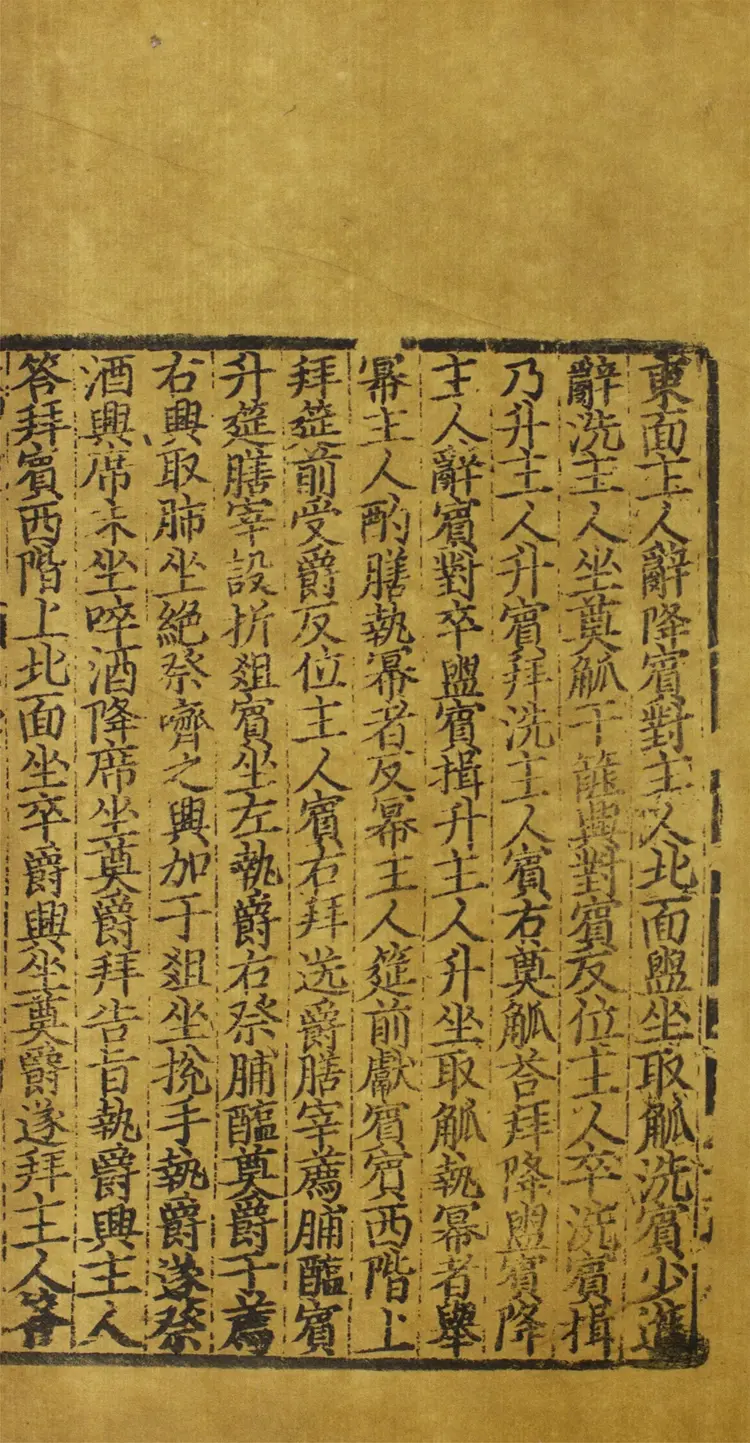 東面主人辭降賓對主人北面盥坐取觚洗賓少進
辭洗主人坐奠觚于篚興對賓反位主人卒洗賓揖
乃升主人升賓拜洗主人賓右奠觚荅拜降盥賓降
主人辭賓對卒盥賓揖升主人升坐取觚執冪者舉
冪主人酌膳執冪者反冪主人筵前獻賓賓西階上
拜筵前受爵反位主人賓右拜送爵膳宰薦脯醢賓
升筵膳宰設折俎賓坐左執爵右祭脯醢奠爵于薦
右興取肺坐絶祭嚌之興加于俎坐挩手執爵遂祭
酒興席末坐啐酒降席坐奠爵拜告旨執爵興主人
答拜賓西階上北面坐卒爵興坐奠爵遂拜主人答